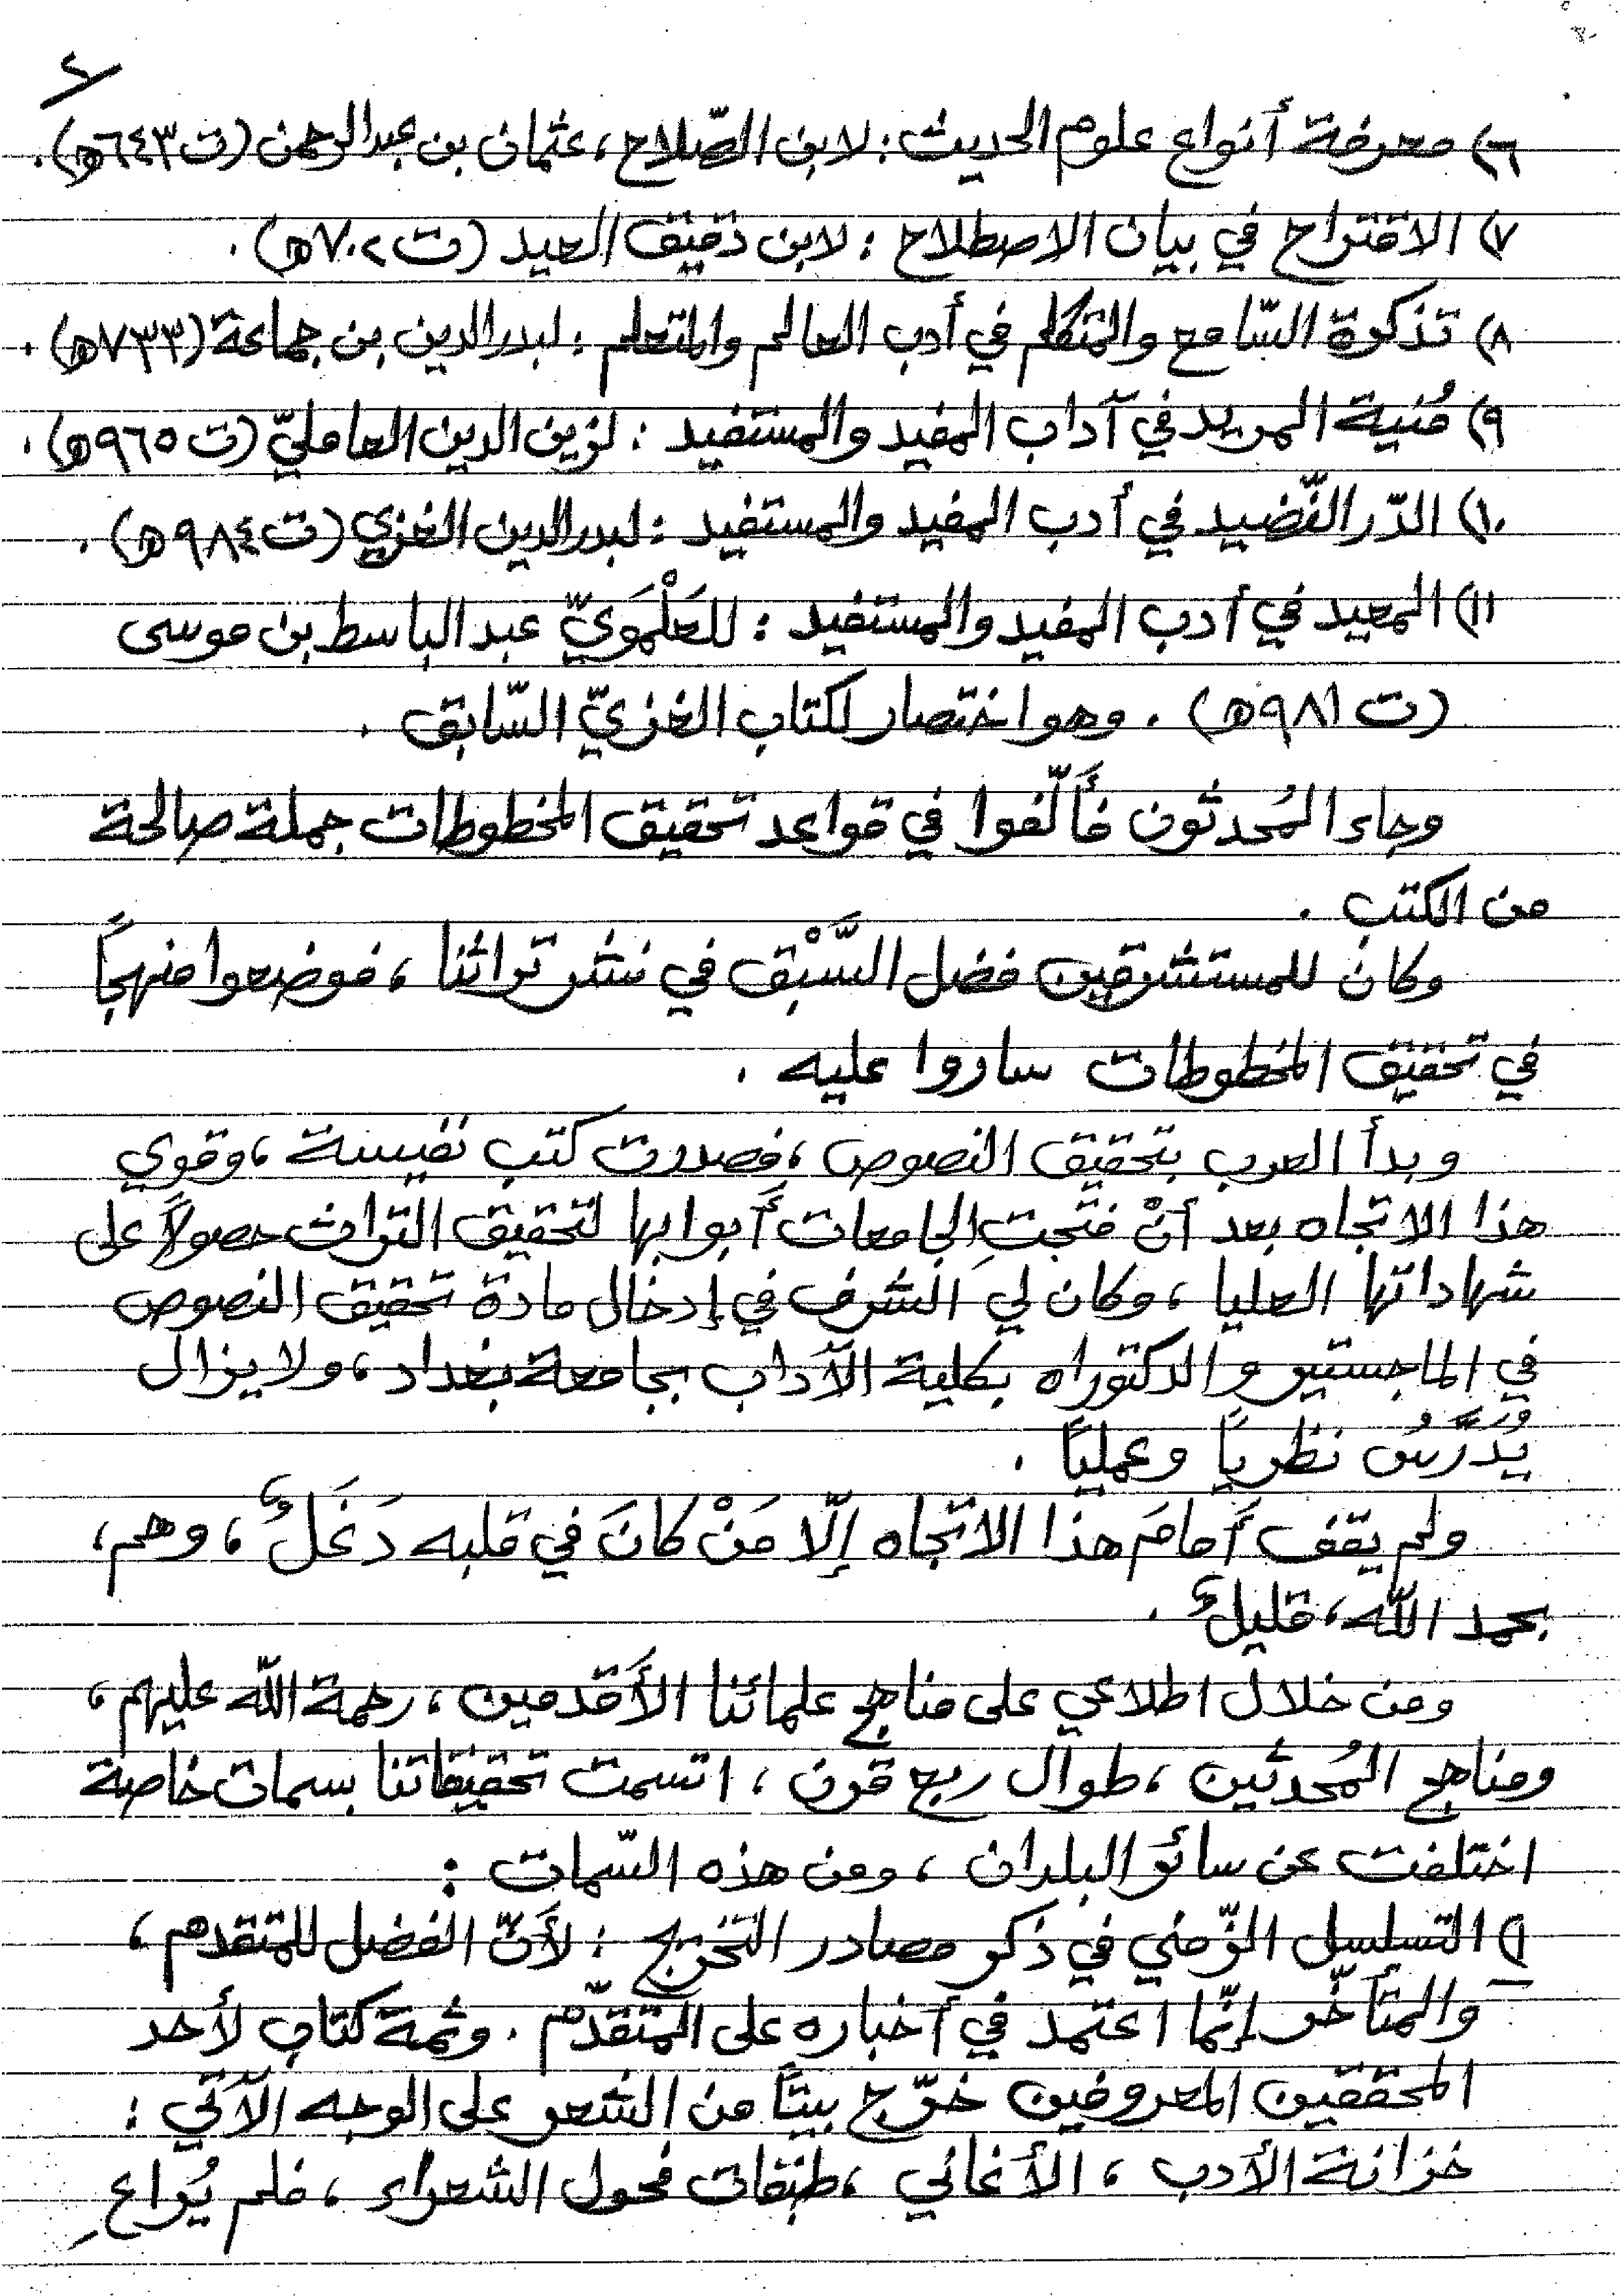 ٢
٦) معرفة أنواع علوم الحديث: لابن الصّلاح، عثمان بن عبدالرحمن (ت ٦٤٣هـ).
٧) الاقتراح في بيان الاصطلاح: لابن دقيق العيد (ت ٧٠٢هـ).
٨) تذكرة السّامع والمتكلم في أدب العالم والمتعلم: لبدرالدين بن جماعة (٧٣٣هـ).
٩) مُنية المريد في آداب المفيد والمستفيد: لزين الدين العامليّ (ت ٩٦٥هـ).
١٠) الدّر النّضيد في أدب المفيد والمستفيد: لبدرالدين الغزي (ت ٩٨٤هـ).
١١) المعيد في أدب المفيد والمستفيد: للعَلْمَويّ عبد الباسط بن موسى
(ت ٩٨١هـ). وهو اختصار لكتاب الغزيّ السّابق.
وجاء المُحدثون فأَلّفوا في قواعد تحقيق المخطوطات جملة صالحة
من الكتب.
وكان للمستشرقين فضل السَّبْق في نشر تراثنا، فوضعوا منهجًا
في تحقيق المخطوطات ساروا عليه.
وبدأ العرب بتحقيق النصوص، فصدرت كتب نفيسة، وقوي
هذا الاتجاه بعد أنْ فتحتِ الجامعات أَبوابها لتحقيق التراث حصولاً على
شهاداتها العليا، وكان لي الشرف في إدخال مادة تحقيق النصوص
في الماجستير والدكتوراه بكلية الآداب بجامعة بغداد، ولا يزال
يُدَرَّسُ نظريًا وعمليًا.
ولم يقف أَمامَ هذا الاتجاه إلّا مَنْ كانَ في قلبه دَغَلٌ، وهم،
بحمد اللّه، قليلٌ.
ومن خلال اطلاعي على مناهج علمائنا الأَقدمين، رحمة اللّه عليهم،
ومناهج المُحدثين، طوال ربع قرن، اتسمت تحقيقاتنا بسمات خاصة
اختلفت عن سائر البلدان، ومن هذه السّمات:
١) التسلسل الزّمني في ذكر مصادر التخريج: لأَنّ الفضل للمتقدم،
والمتأخّر إنّما اعتمد في أخباره على المتقدّم. وثمة كتاب لأحد
المحققين المعروفين خرّج بيتًا من الشعر على الوجه الآتي:
خزانة الأدب، الأغاني، طبقات فحول الشعراء، فلم يُراعِ